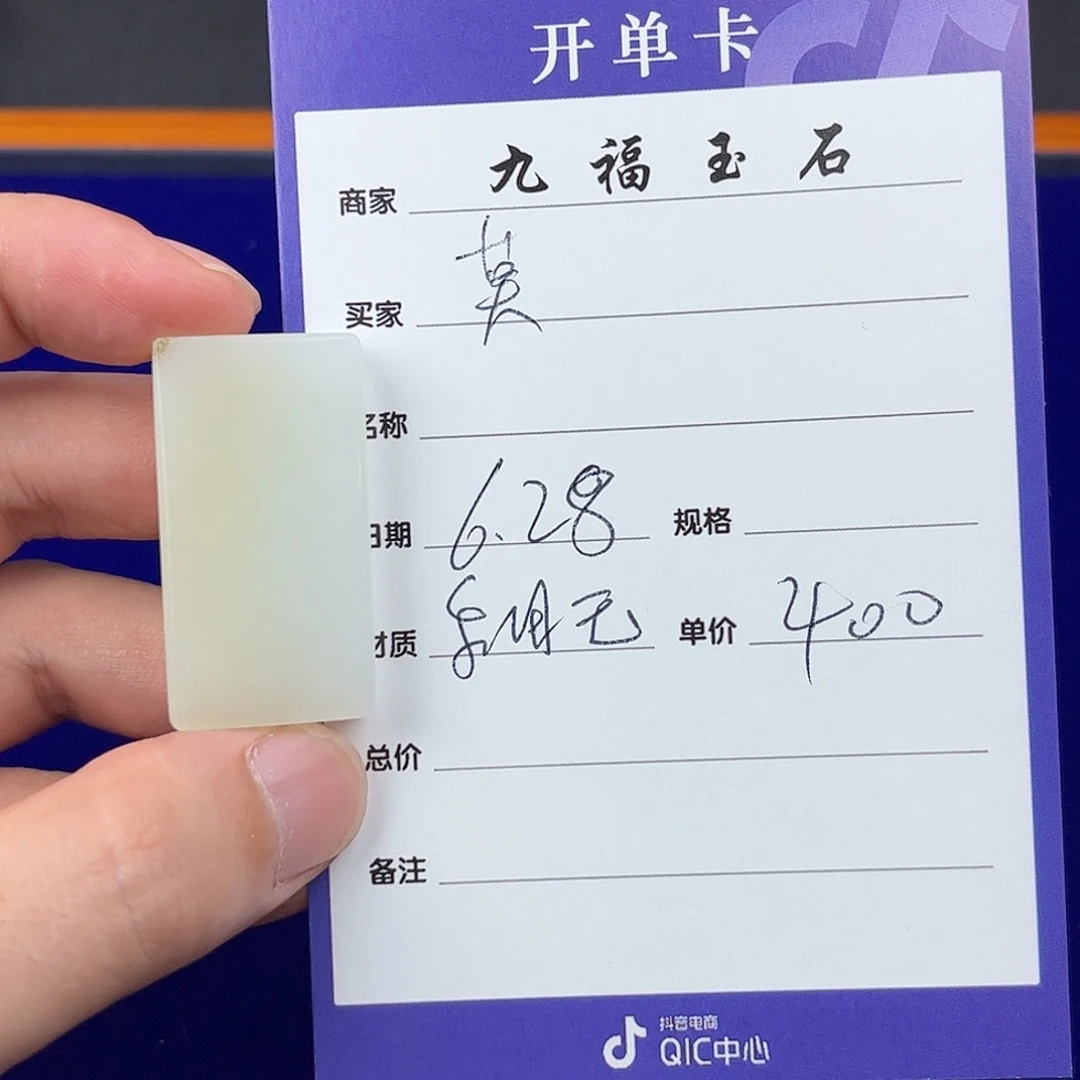 开单卡
商家 九福玉石
买家 莫
名称
日期 6.28 规格
材质 单价 400
总价
备注
抖音电商
QIC中心